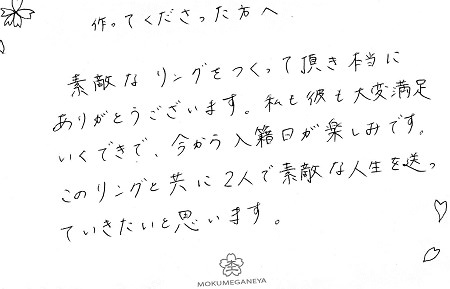 作ってくださった方へ
素敵なリングをつくって頂き本当に
ありがとうございます。私も彼も大変満足
いくできで、今から入籍日が楽しみです。
このリングと共に2人で素敵な人生を送っ
ていきたいと思います。
MOKUMEGANEYA